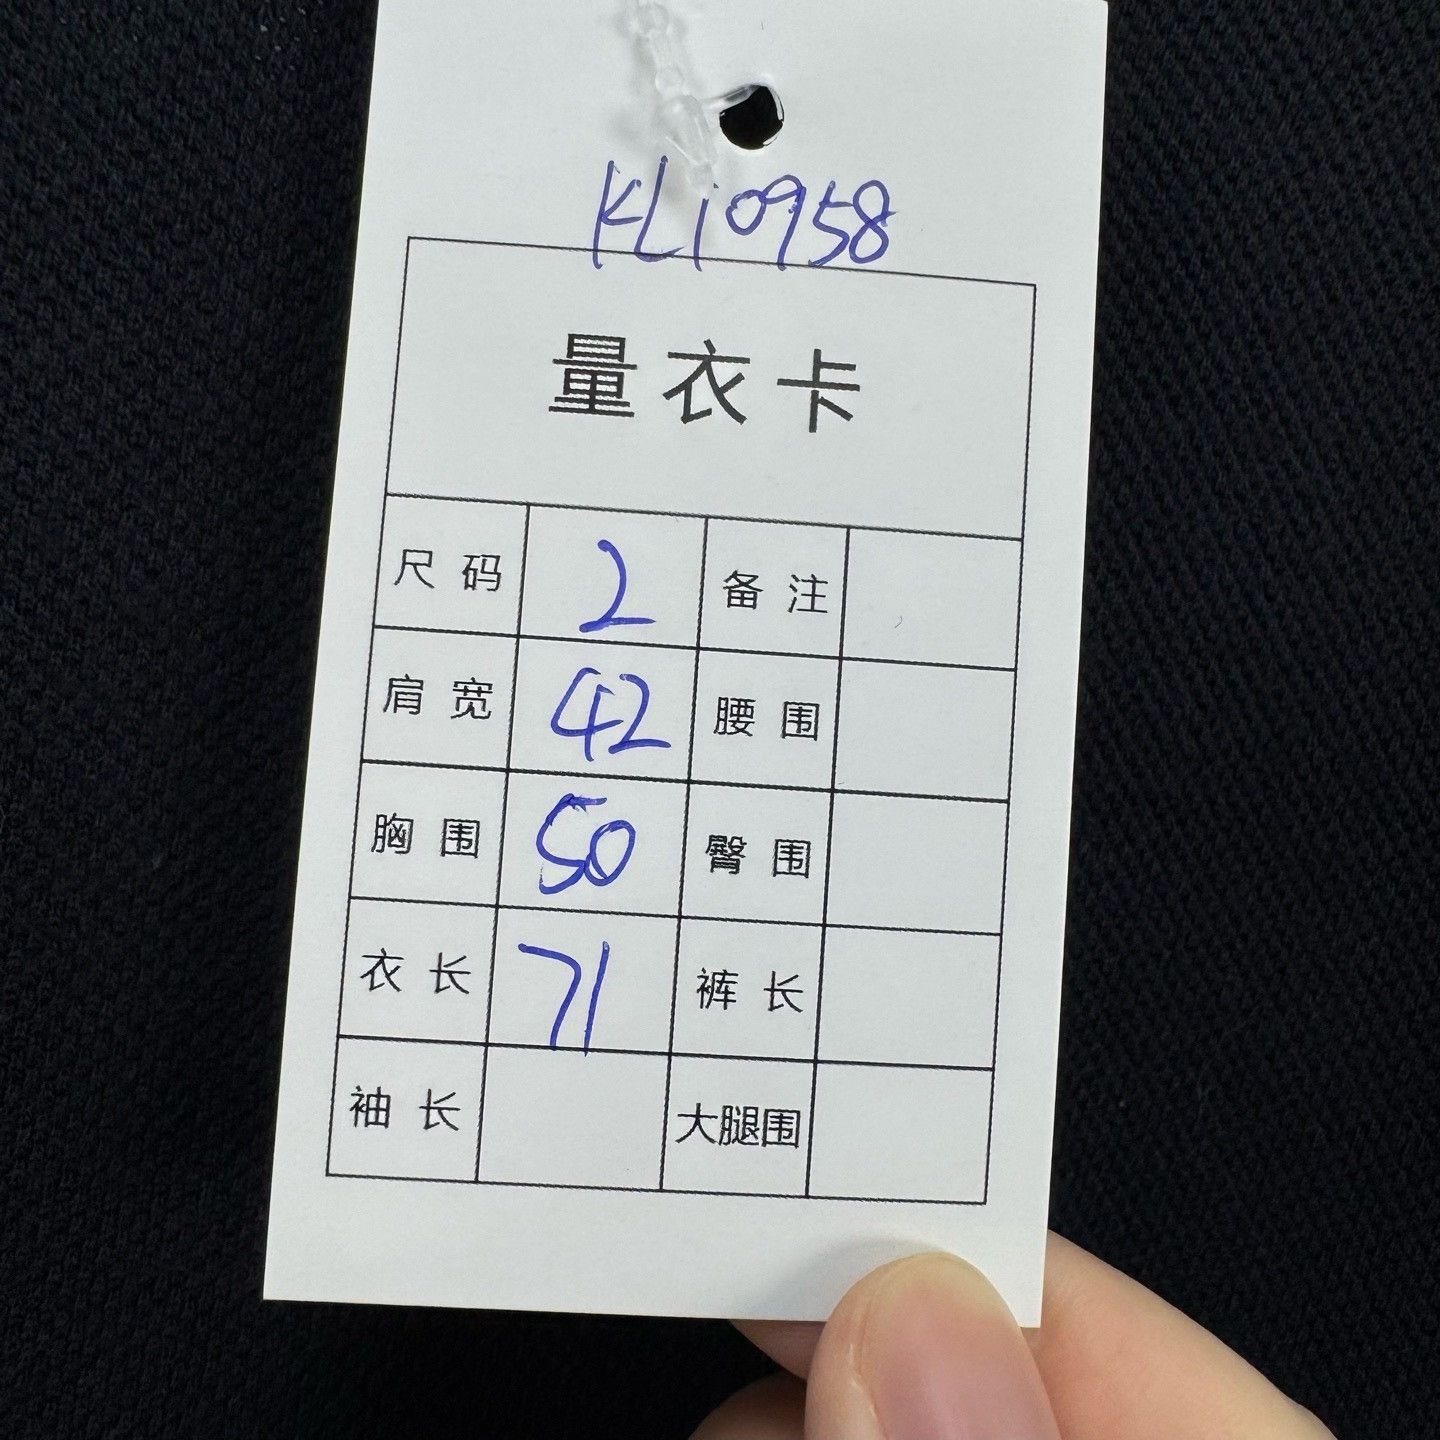 KL10958
量衣卡
尺码 2 备注
肩宽 42 腰围
胸围 50 臀围
衣长 71 裤长
袖长 大腿围